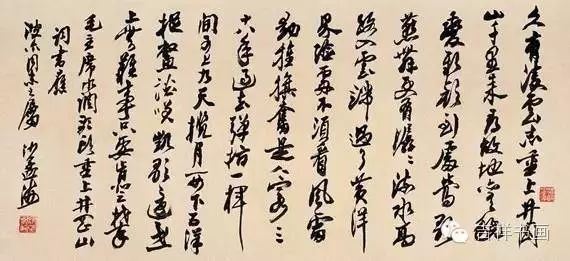 久有凌雲志重上井岡
山千里來尋故地舊貌
變新顏到處鶯歌
燕舞更有潺潺流水高
路入雲端過了黃洋
界險處不須看風雷
動旌旗奮是人寰三
十八年過去彈指一揮
間可上九天攬月可下五洋
捉鱉談笑凱歌還世
上無難事只要肯登攀
毛主席水調歌頭重上井岡山
詞書應
同志之屬 沙孟海
吉祥书画